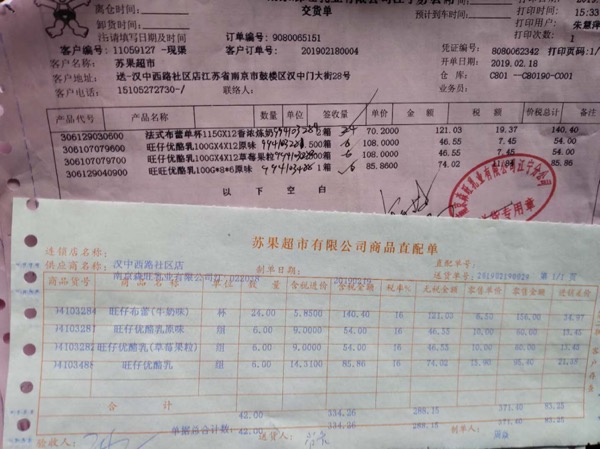 交货单
离仓时间：
卸货时间：
预计到车时间：
打印时间：15:33
打印用户：朱慧萍
打印次数：1
请填写日期及时间
订单编号：9080065151
客户编号：11059127 -现渠
客户订单号：201902180004
凭证编号：8080062342 打印页码:1/
客户名称：苏果超市
开单日期：2019.02.18
客户地址：送-汉中西路社区店江苏省南京市鼓楼区汉中门大街28号
仓 库：C801 --C80190-C001
客户电话：15105272730-/
联络人：
业务员：
产品代号 产品名称 数量 单位 签收量 单价 金 额 税 额 价税总计 备注
306129030600 法式布蕾单杯115GX12香浓炼奶 2箱 24 70.2000 121.03 19.37 140.40
306107079600 旺仔优酪乳100GX4X12原味 .500箱 6 108.0000 46.55 7.45 54.00
306107079700 旺仔优酪乳100GX4X12草莓果粒 .500箱 6 108.0000 46.55 7.45 54.00
306129040900 旺仔优酪乳100G*8*6原味 1箱 6 85.8600 74.02 11.84 85.86
以 下 空 白
苏果超市有限公司商品直配单
连锁店名称： 汉中西路社区店
直配单号：
供应商名称：
制单日期：
送货单号： 第1/1页
商品货号 商品名称 单位 数量 含税进价 含税金额 税率% 无税金额 零售单价 零售金额 进销差价
04103284 旺仔布蕾(牛奶味) 杯 24.00 5.8500 140.40 16 121.03 6.50 156.00 34.97
旺仔优酪乳原味 组 6.00 9.0000 54.00 16 46.55 10.00 60.00 13.45
旺仔优酪乳(草莓果粒) 组 6.00 9.0000 54.00 16 46.55 10.00 60.00 13.45
04103488 旺仔优酪乳 组 6.00 14.3100 85.86 16 74.02
合 计 42.00 334.26 288.15 371.40 83.25
单据总合计数： 42.00 334.26 288.15 371.40 83.25
验收人：
送货人：
制单人：